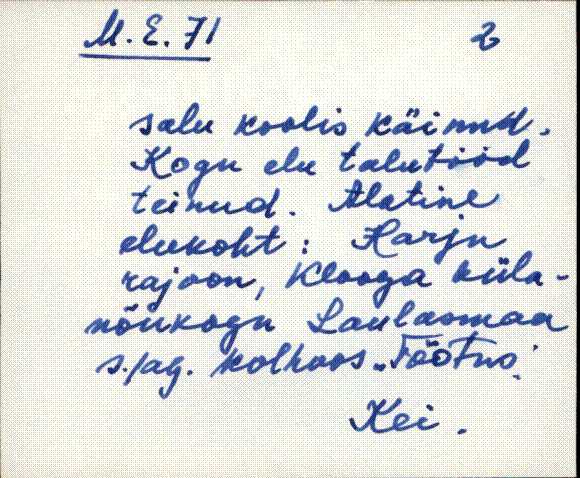 M. E. 71 2
salu koolis käinud.
Kogu elu talutööd
teinud. Alatine
elukoht : Harju
rajoon, Klooga küla-
nõukogu Laulasmaa
s./ag. kolhoos „Töötus"
Kei.